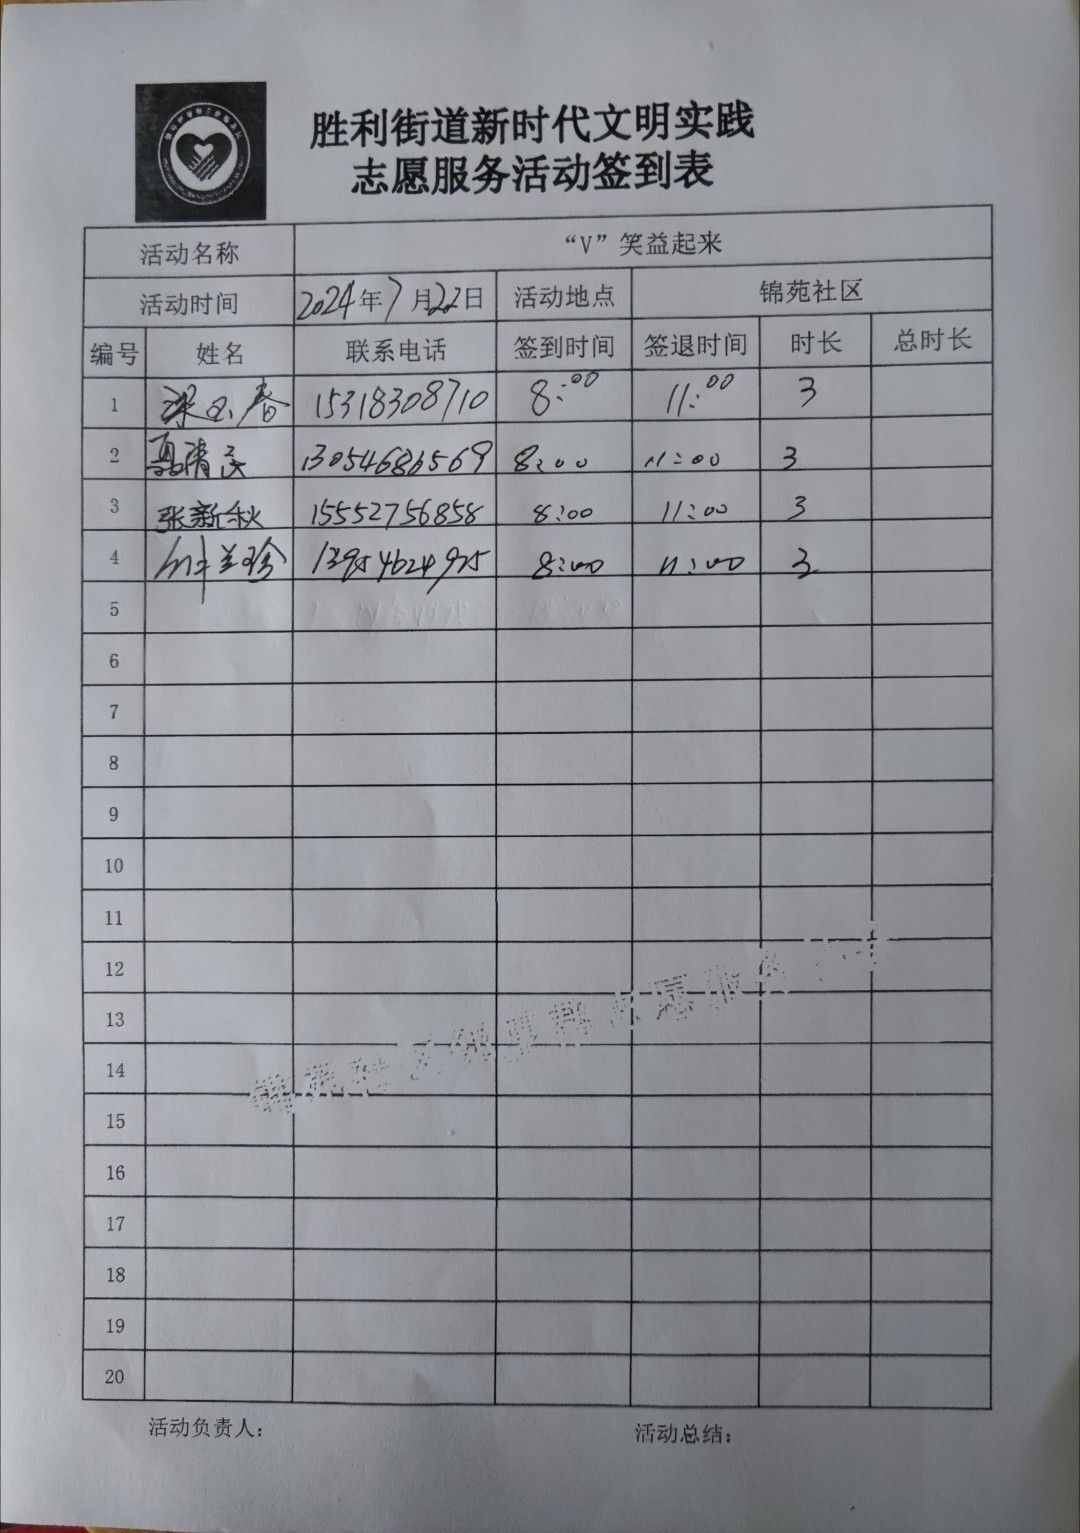 胜利街道新时代文明实践
志愿服务活动签到表
活动名称 “V”笑益起来
活动时间 2024年7月22日 活动地点 锦苑社区
编号 姓名 联系电话 签到时间 签退时间 时长 总时长
1 春 15318308710 8:00 11:00 3
2 13054686569 8:00 11:00 3
3 张新秋 15552756858 8:00 11:00 3
4 兰珍 13954624925 8:00 11:00 3
5
6
7
8
9
10
11
12
13
14
15
16
17
18
19
20
活动负责人: 活动总结: